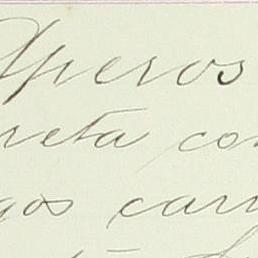 Aperos
reta con
gos carr